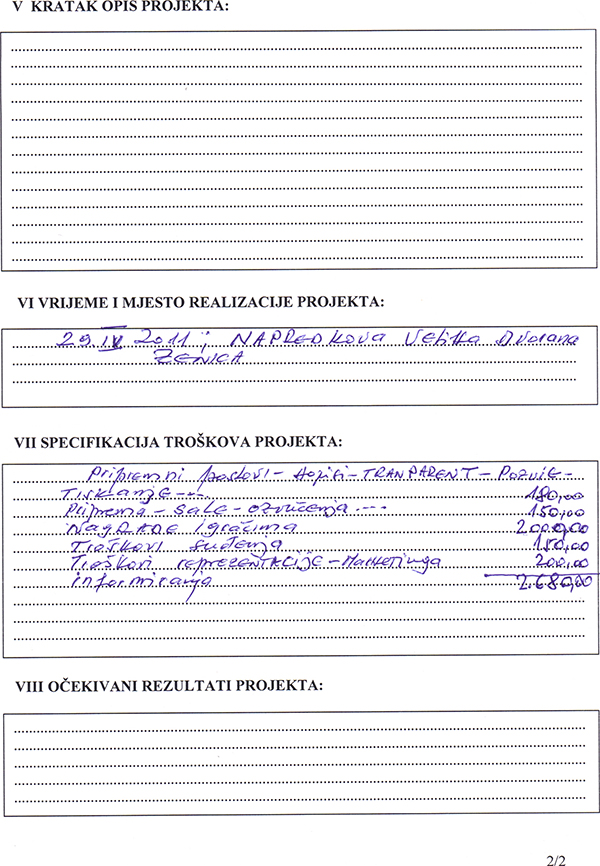 V KRATAK OPIS PROJEKTA:
VI VRIJEME I MJESTO REALIZACIJE PROJEKTA:
29. IV 2011; NAPREDKOVA Velika Dvorana
ZENICA
VII SPECIFIKACIJA TROŠKOVA PROJEKTA:
Pripremni poslovi - - TRANPARENT - Pozivi -
Tiskanje --.. 180,00
Priprema - sale - ozvučenja --.. 150,00
NAGRADE Igračima 2000,00
Troškovi suđenja 150,00
Troškovi reprezentacije - Marketinga 200,00
informiranja 2.680,00
VIII OČEKIVANI REZULTATI PROJEKTA:
2/2